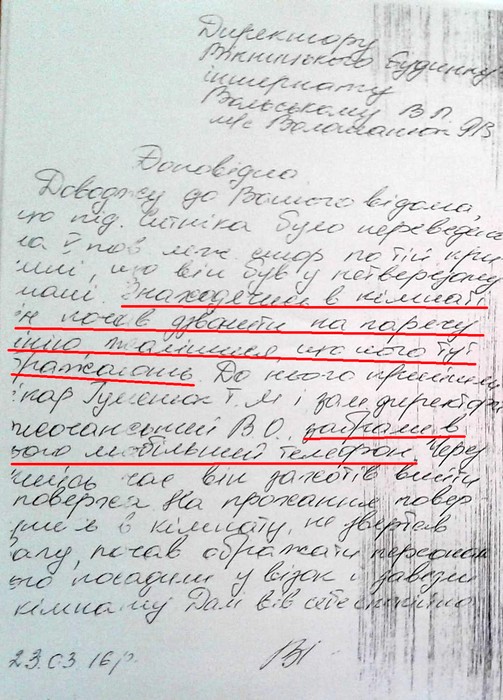 Директору
Вінницького будинку
інтернату
Вольському В П.
м/с Воломанюк ЯВ
Доповідна
Доводжу до Вашого відома,
що під. Ситніка було переведено
на V пов леж стор по тій при
ині, що він був у нетверезому
тані. Знаходячись в кімнаті
ін почав дзвонити на
що його тут
ражають. До нього прийшли
ікар Гуменюк Т. М і зам директора
В О. забрали в
ього мобільний телефон. Чере
якийсь час він захотів вийти
поверха На прохання повер
в кімнату, не звертав
агу, почав ображати персонал
ого посадили у візок і завезли
кімнату Далі вів себе спокійно
23.03 16р.